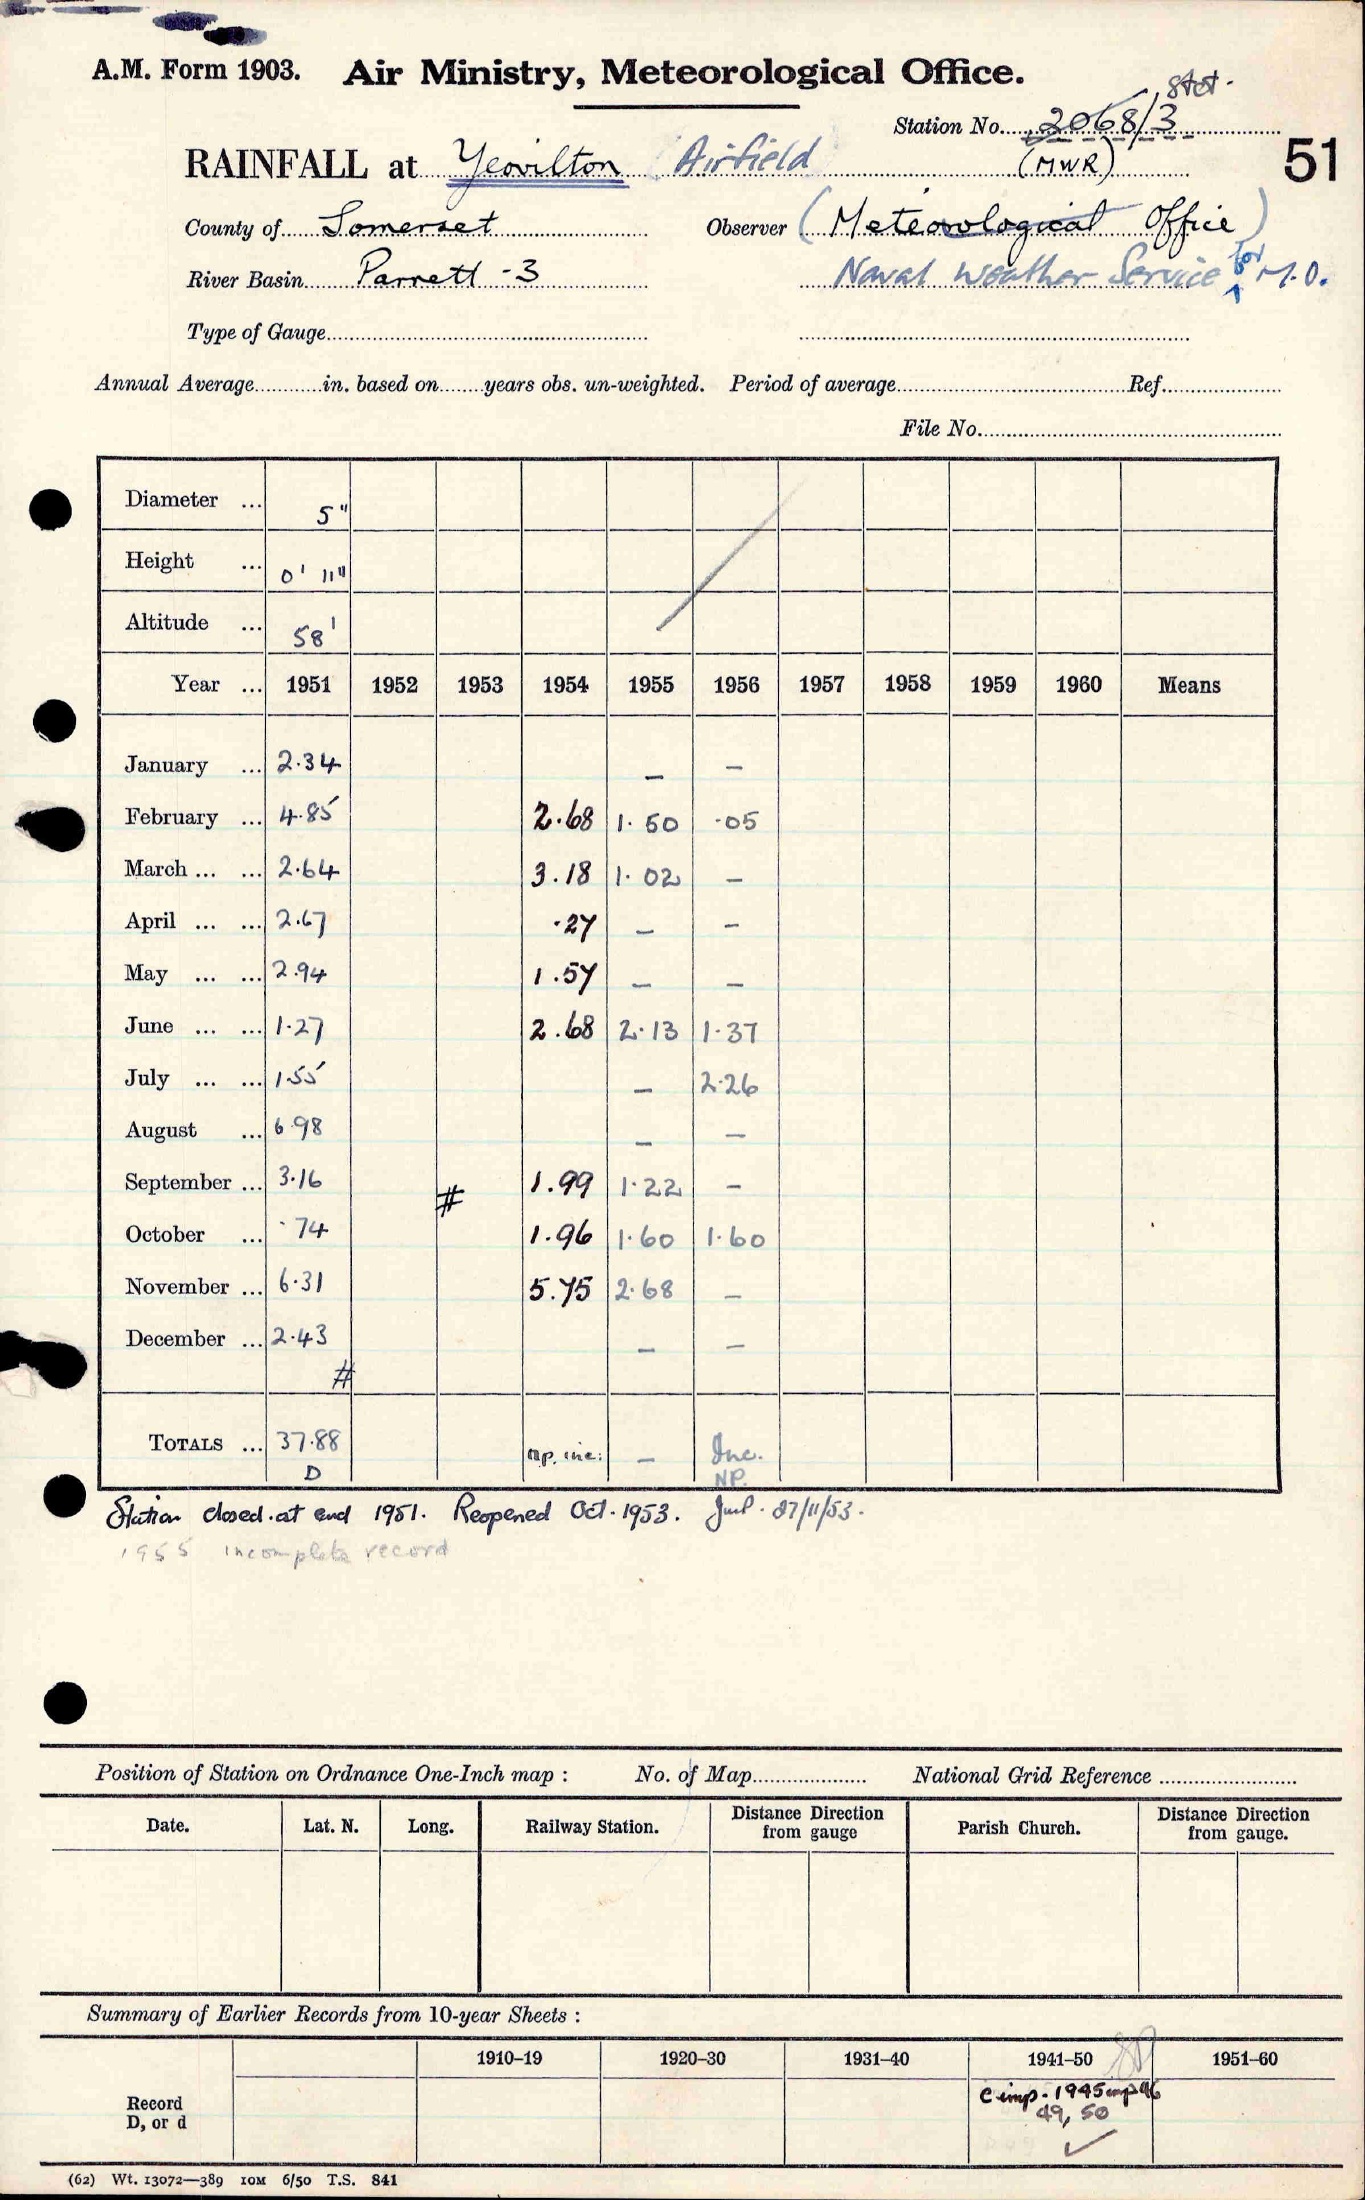 A.M. Form 1903. Air Ministry, Meteorological Office.
Stet.
Station No. 2068/3
RAINFALL at Yeovilton (Airfield (MWR) 51
County of Somerset Observer (Meteorological Office)
River Basin Parrett - 3 Naval Weather Service for M.O.
Type of Gauge
Annual Average in. based on years obs. un-weighted. Period of average Ref.
File No.
Diameter ... 5"
Height ... 0' 11"
Altitude ... 58'
Year ... 1951 1952 1953 1954 1955 1956 1957 1958 1959 1960 Means
January ... 2.34 – –
February ... 4.85 2.68 1.50 .05
March ... ... 2.64 3.18 1.02 –
April ... ... 2.67 .27 – –
May ... ... 2.94 1.57 – –
June ... ... 1.27 2.68 2.13 1.37
July ... ... 1.55 – 2.26
August ... 6.98 – –
September ... 3.16 # 1.99 1.22 –
October ... .74 1.96 1.60 1.60
November ... 6.31 5.75 2.68 –
December ... 2.43 – –
#
TOTALS ... 37.88 np. inc: – Inc.
D NP.
Station closed at end 1951. Reopened Oct. 1953. 27/11/53.
1955 incomplete record
Position of Station on Ordnance One-Inch map : No. of Map National Grid Reference
Date. Lat. N. Long. Railway Station. Distance from gauge Direction Parish Church. Distance from gauge. Direction
Summary of Earlier Records from 10-year Sheets :
1910–19 1920–30 1931–40 1941–50 1951–60
Record
D, or d
c imp. 1945 imp 46
49, 50
(62) Wt. 13072—389 10M 6/50 T.S. 841